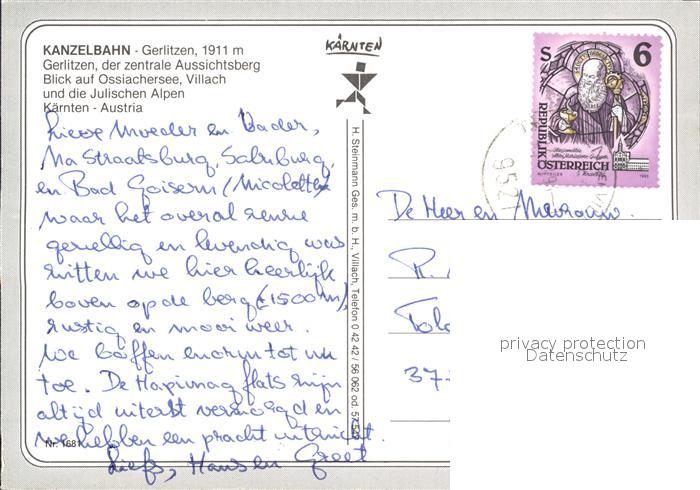 KANZELBAHN - Gerlitzen, 1911 m
Gerlitzen, der zentrale Aussichtsberg
Blick auf Ossiachersee, Villach
und die Julischen Alpen
Kärnten - Austria
KÄRNTEN
S 6
REPUBLIK ÖSTERREICH
9521
Lieve Moeder en Vader,
Na Straatsburg, Salzburg,
en Bad Goisern (Nicolette)
waar het overal
gezellig en levendig was
zitten we hier heerlijk
boven op de berg (±1500 m),
rustig en mooi weer.
We boffen enorm tot nu
toe. De Hapimag flats zijn
altijd uiterst verzorgd en
we hebben een pracht uitzicht.
Liefs, Hans en Greet
Nr. 1681
H. Steinmann Ges. m. b. H., Villach, Telefon 0 42 42 / 56 062 od. 57
De Heer en Mevrouw.
37
privacy protection
Datenschutz